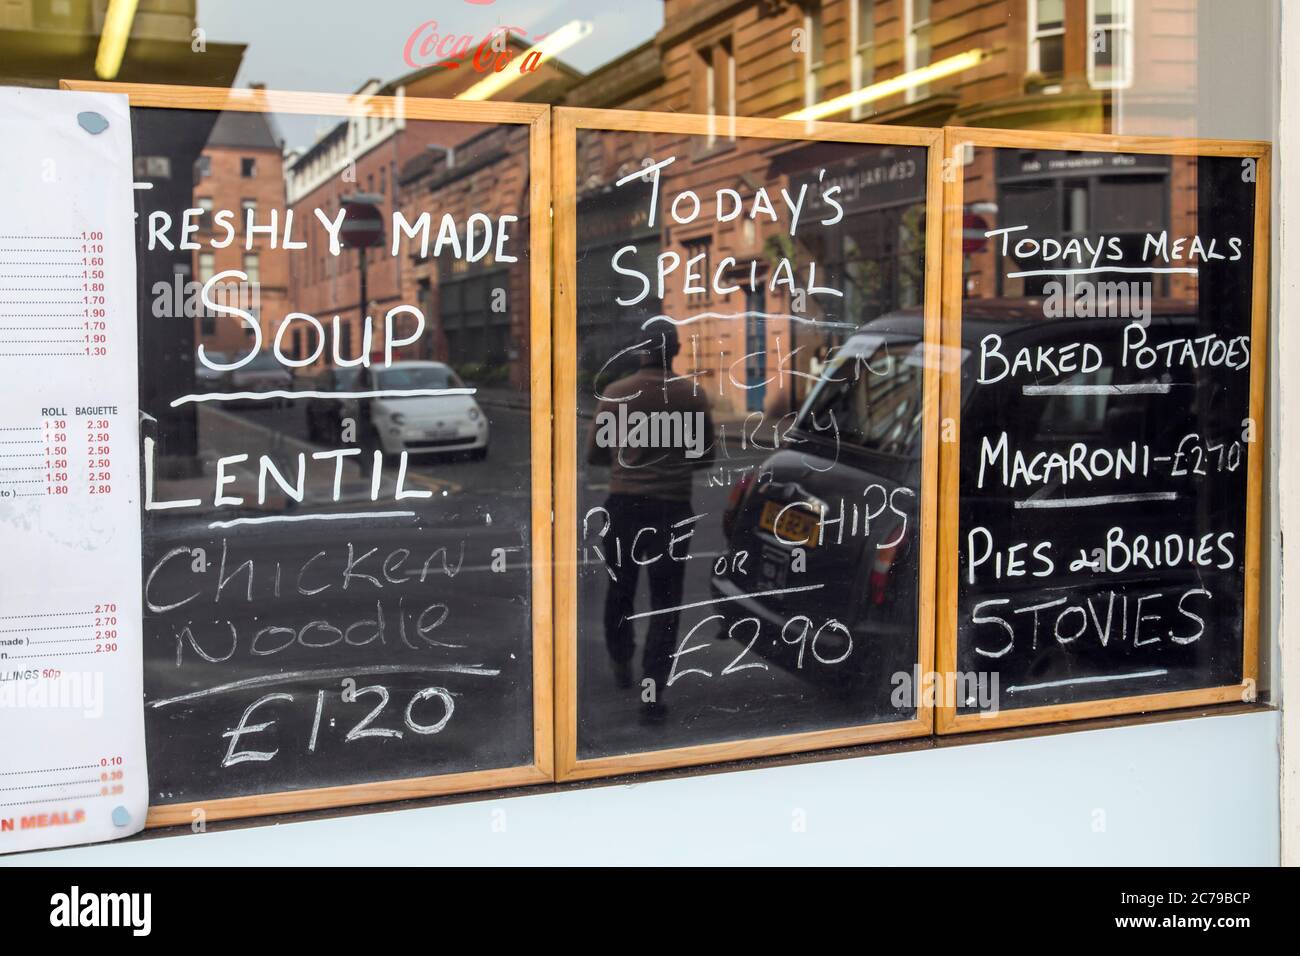 Coca Cola
1.00
1.10
1.60
1.50
1.80
1.70
1.90
1.70
1.90
1.30
ROLL BAGUETTE
1.30 2.30
1.50 2.50
1.50 2.50
1.50 2.50
1.50 2.50
1.80 2.80
2.70
2.70
made ) 2.90
2.90
LLINGS 60p
0.10
0.30
0.30
N MEALS
FRESHLY MADE
SOUP
LENTIL.
CHICKEN
NOODLE
£1.20
TODAY'S
SPECIAL
CHICKEN
CURRY
WITH
RICE OR CHIPS
£2.90
TODAYS MEALS
BAKED POTATOES
MACARONI-£2.70
PIES & BRIDIES
STOVIES
alamy
Image ID: 2C79BCP
www.alamy.com